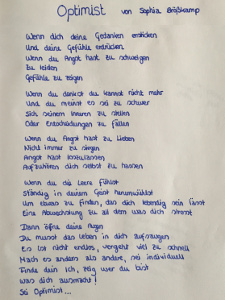 Optimist von Sophia Großkamp
Wenn dich deine Gedanken ersticken
Und deine Gefühle erdrücken
Wenn du Angst hast zu schweigen
Zu leiden
Gefühle zu zeigen
Wenn du denkst du kannst nicht mehr
Und du meinst es sei zu schwer
Sich seinem Inneren zu stellen
Oder Entscheidungen zu fällen
Wenn du Angst hast zu lieben
Nicht immer zu siegen
Angst hast loszulassen
Aufzuhören dich selbst zu hassen
Wenn du die Leere fühlst
Ständig in deinem Geist herumwühlst
Um etwas zu finden, das dich lebendig sein lässt
Eine Abweichung zu all dem was dich stresst
Dann öffne deine Augen
Du musst das Leben in dich aufsaugen
Es ist nicht endlos, vergeht viel zu schnell
Mach es anders als andere, sei individuell
Finde dein Ich, zeig wer du bist
Was dich ausmacht!
Sei Optimist...